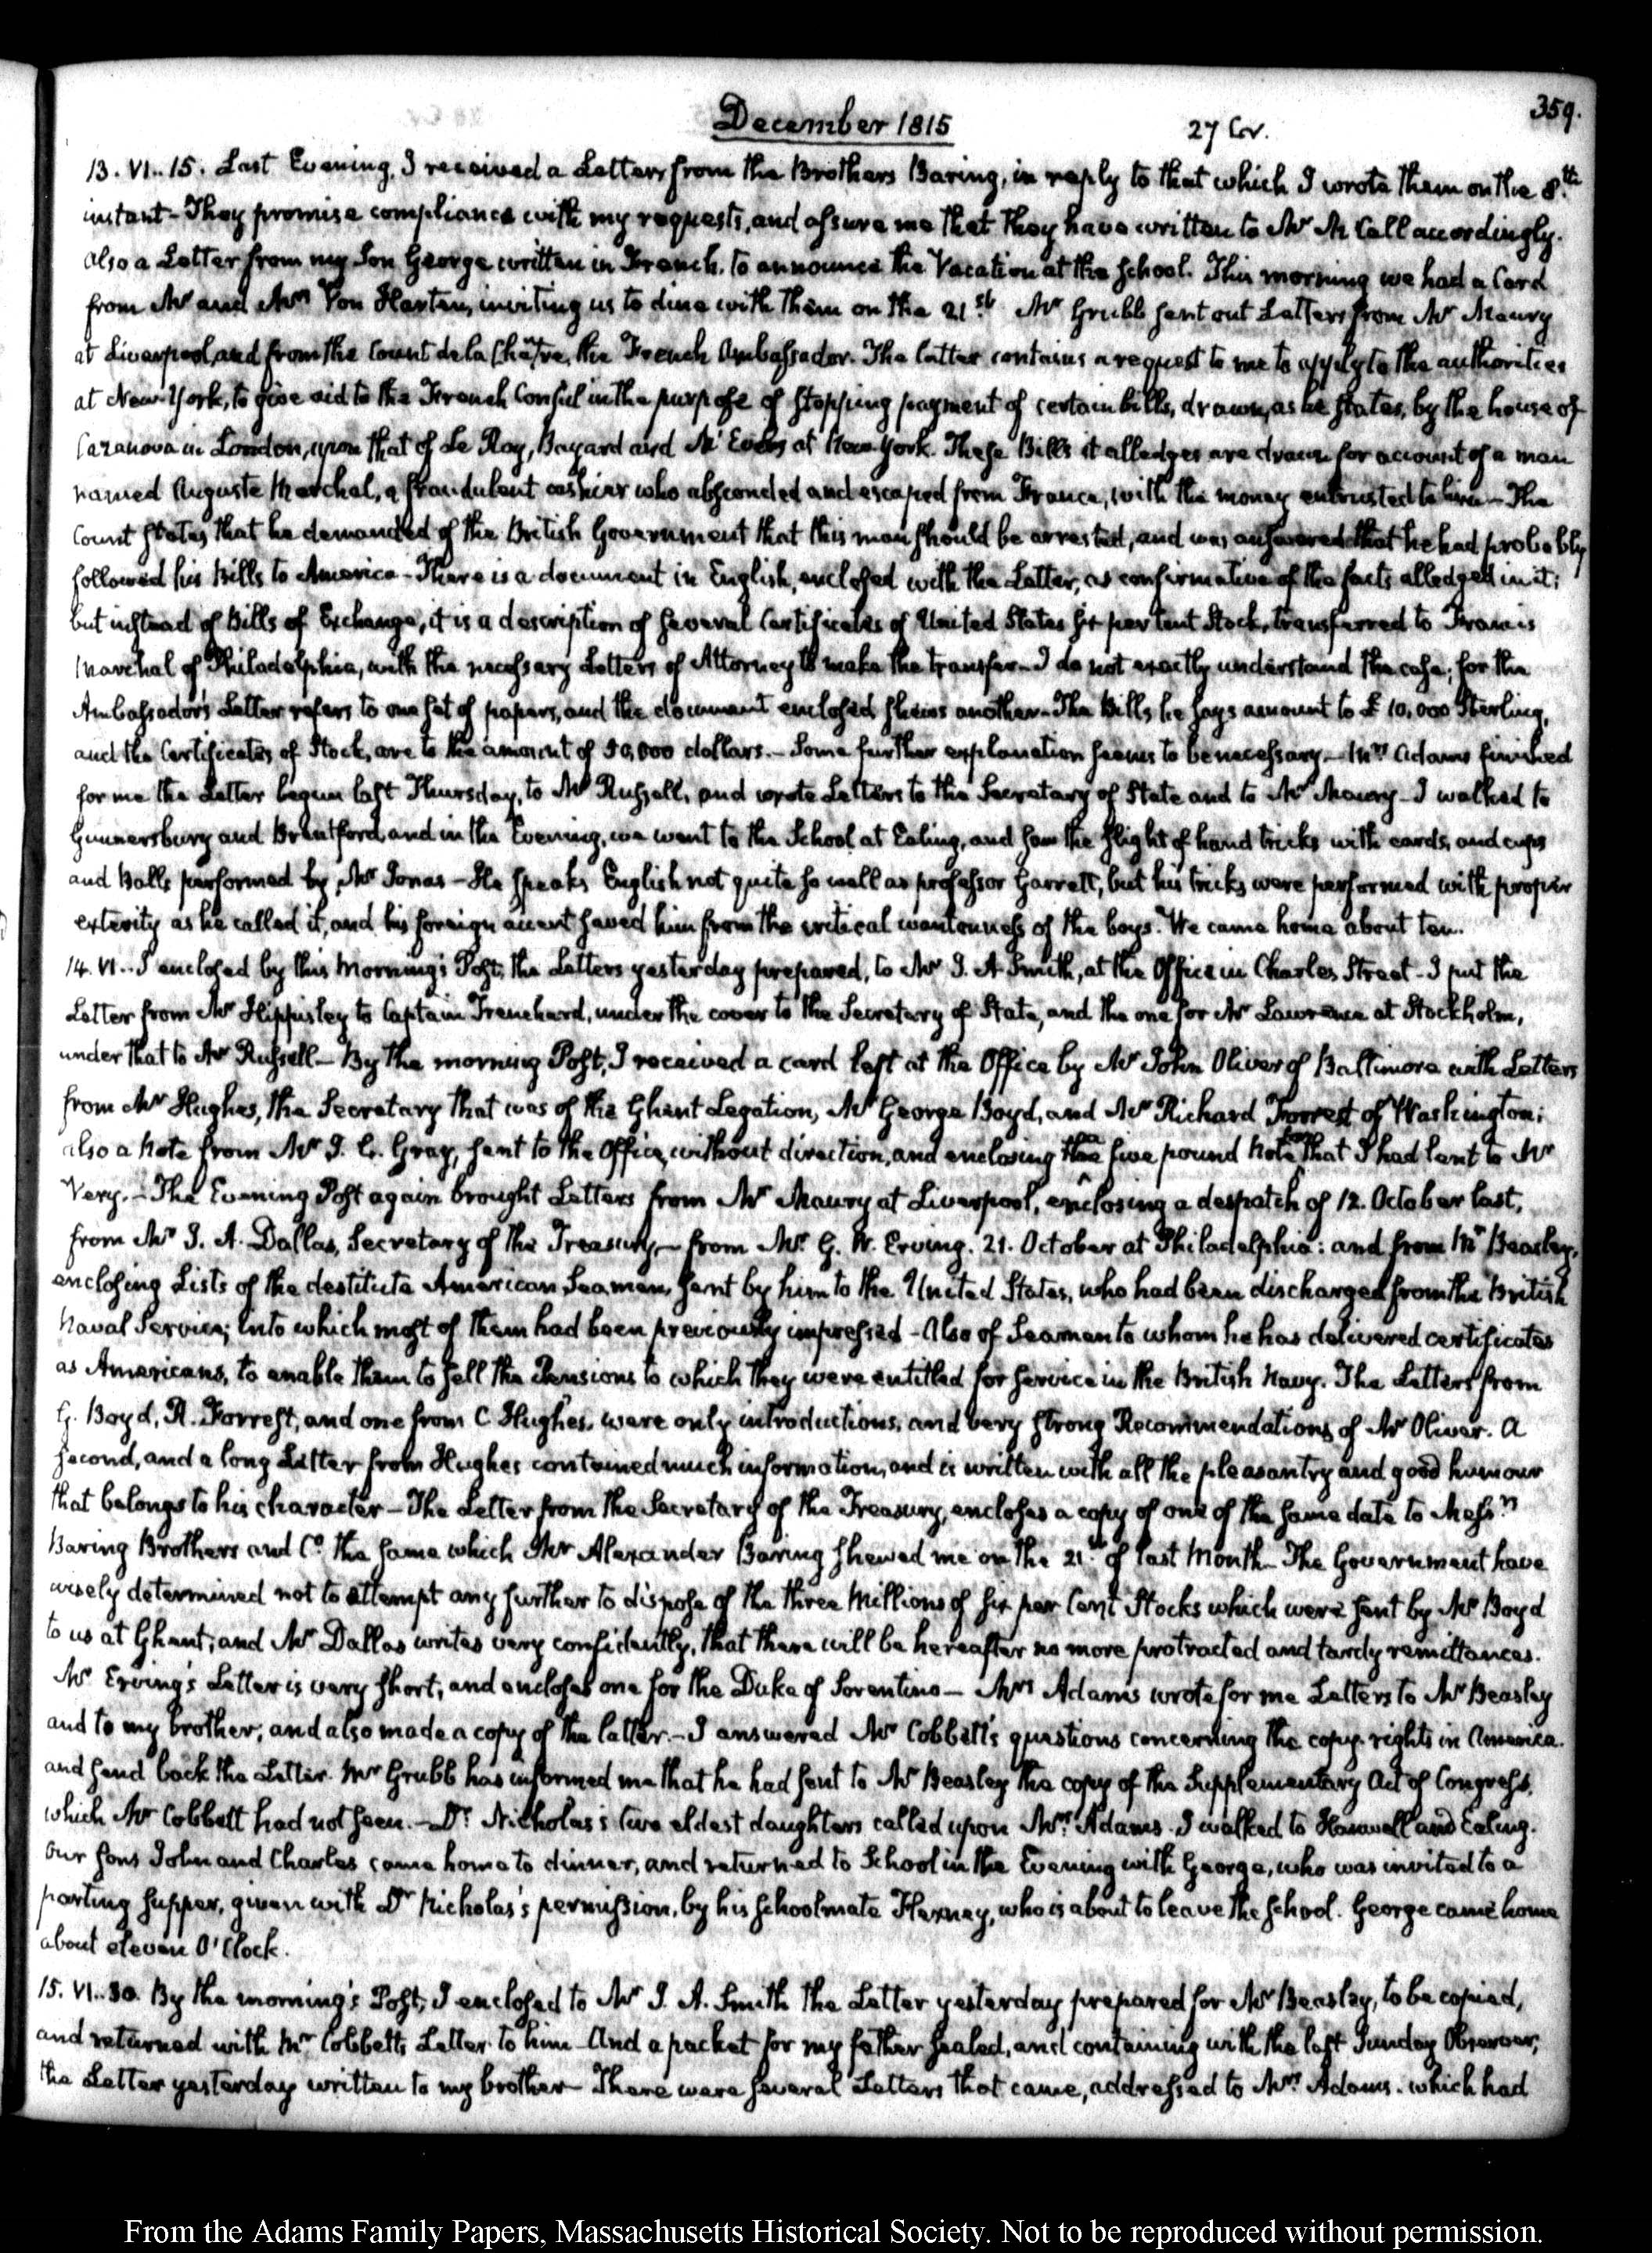 359.
December 1815
27 Cor.
13. VI..15. Last Evening, I received a Letter from the Brothers Baring, in reply to that which I wrote them on the 8.th
instant - They promise compliance with my requests, and assure me that they have written to Mr McCall accordingly.
also a Letter from my Son George written in French, to announce the Vacation at the School. This morning we had a Card
from Mr and Mrs Von Harten, inviting us to dine with them on the 21st. Mr Grubb sent out Letters from Mr Maury
at Liverpool, and from the Count de la Châtre, the French Ambassador. The latter contains a request to me to apply to the authorities
at New-York, to give aid to the French Consul in the purpose of stopping payment of certain bills, drawn, as he states, by the house of
Cazanova in London, upon that of Le Roy, Bayard and McEvers at New-York. These Bills it alledges are drawn for account of a man
named Auguste Marchal, a fraudulent cashier who absconded and escaped from France, with the money entrusted to him - The
Count states that he demanded of the British Government that this man should be arrested, and was answered that he had probably
followed his Bills to America - There is a document in English, enclosed with the Letter, as confirmative of the facts alledged in it;
but instead of Bills of Exchange, it is a description of several Certificates of United States six per cent Stock, transferred to Francis
Marchal of Philadelphia, with the necessary Letters of Attorney to make the transfer - I do not exactly understand the case; for the
Ambassador's Letter refers to one set of papers, and the document enclosed shews another - The Bills he says amount to £ 10,000 Sterling,
and the Certificates of Stock, are to the amount of 50,000 dollars. - Some further explanation seems to be necessary - Mrs Adams finished
for me the Letter begun last Thursday, to Mr Russell, and wrote Letters to the Secretary of State and to Mr Maury - I walked to
Gunnersbury and Brentford, and in the Evening, we went to the School at Ealing, and saw the slight of hand tricks with cards, and cups
and Balls performed by Mr Jonas - He speaks English not quite so well as professor Garrett, but his tricks were performed with proper
exterity as he called it, and his foreign accent saved him from the critical wantonness of the boys. We came home about ten.
14. VI.. I enclosed by this Morning's Post, the Letters yesterday prepared, to Mr J. A. Smith, at the Office in Charles Street - I put the
Letter from Mr Hippisley to Captain Trenchard, under the cover to the Secretary of State, and the one for Mr Lawrence at Stockholm,
under that to Mr Russell - By the morning Post, I received a card left at the Office by Mr John Oliver of Baltimore with Letters
from Mr Hughes, the Secretary that was of the Ghent Legation, Mr George Boyd, and Mr Richard Forrest of Washington;
also a Note from Mr J. C. Gray, sent to the Office, without direction, and enclosing the five pound Note that I had lent to Mr
Very. - The Evening Post again brought Letters from Mr Maury at Liverpool, enclosing a despatch of 12. October last,
from Mr J. A. Dallas, Secretary of the Treasury, - from Mr G. W. Erving. 21. October at Philadelphia: and from Mr Beasley,
enclosing Lists of the destitute American Seamen, sent by him to the United States, who had been discharged from the British
Naval Service; into which most of them had been previously impressed - Also of Seamen to whom he has delivered certificates
as Americans, to enable them to sell the Pensions to which they were entitled for service in the British Navy. The Letters from
G. Boyd, R. Forrest, and one from C. Hughes, were only introductions, and very strong Recommendations of Mr Oliver. A
second, and a long Letter from Hughes contained much information, and is written with all the pleasantry and good humour
that belongs to his character - The Letter from the Secretary of the Treasury, encloses a copy of one of the same date to Messrs
Baring Brothers and Co. the same which Mr Alexander Baring shewed me on the 21st of last Month - The Government have
wisely determined not to attempt any further to dispose of the three Millions of six per Cent Stocks which were sent by Mr Boyd
to us at Ghent; and Mr Dallas writes very confidently, that there will be hereafter no more protracted and tardy remittances.
Mr Erving's Letter is very short; and encloses one for the Duke of Sorentino - Mrs Adams wrote for me Letters to Mr Beasley
and to my brother; and also made a copy of the latter. - I answered Mr Cobbett's questions concerning the copy-rights in America.
and send back the Letter. Mr Grubb has informed me that he had sent to Mr Beasley the copy of the Supplementary Act of Congress,
which Mr Cobbett had not seen. - Dr Nicholas's two eldest daughters called upon Mrs Adams. I walked to Hanwell and Ealing.
Our sons John and Charles came home to dinner, and returned to School in the Evening with George, who was invited to a
parting supper, given with Dr Nicholas's permission, by his schoolmate Harney, who is about to leave the School. George came home
about eleven O'Clock.
15. VI..30. By the morning's Post, I enclosed to Mr J. A. Smith the Letter yesterday prepared for Mr Beasley, to be copied,
and returned with Mr Cobbett's Letter to him - And a packet for my father sealed, and containing with the last Sunday Observer,
the Letter yesterday written to my brother - There were several Letters that came, addressed to Mrs Adams. which had
From the Adams Family Papers, Massachusetts Historical Society. Not to be reproduced without permission.